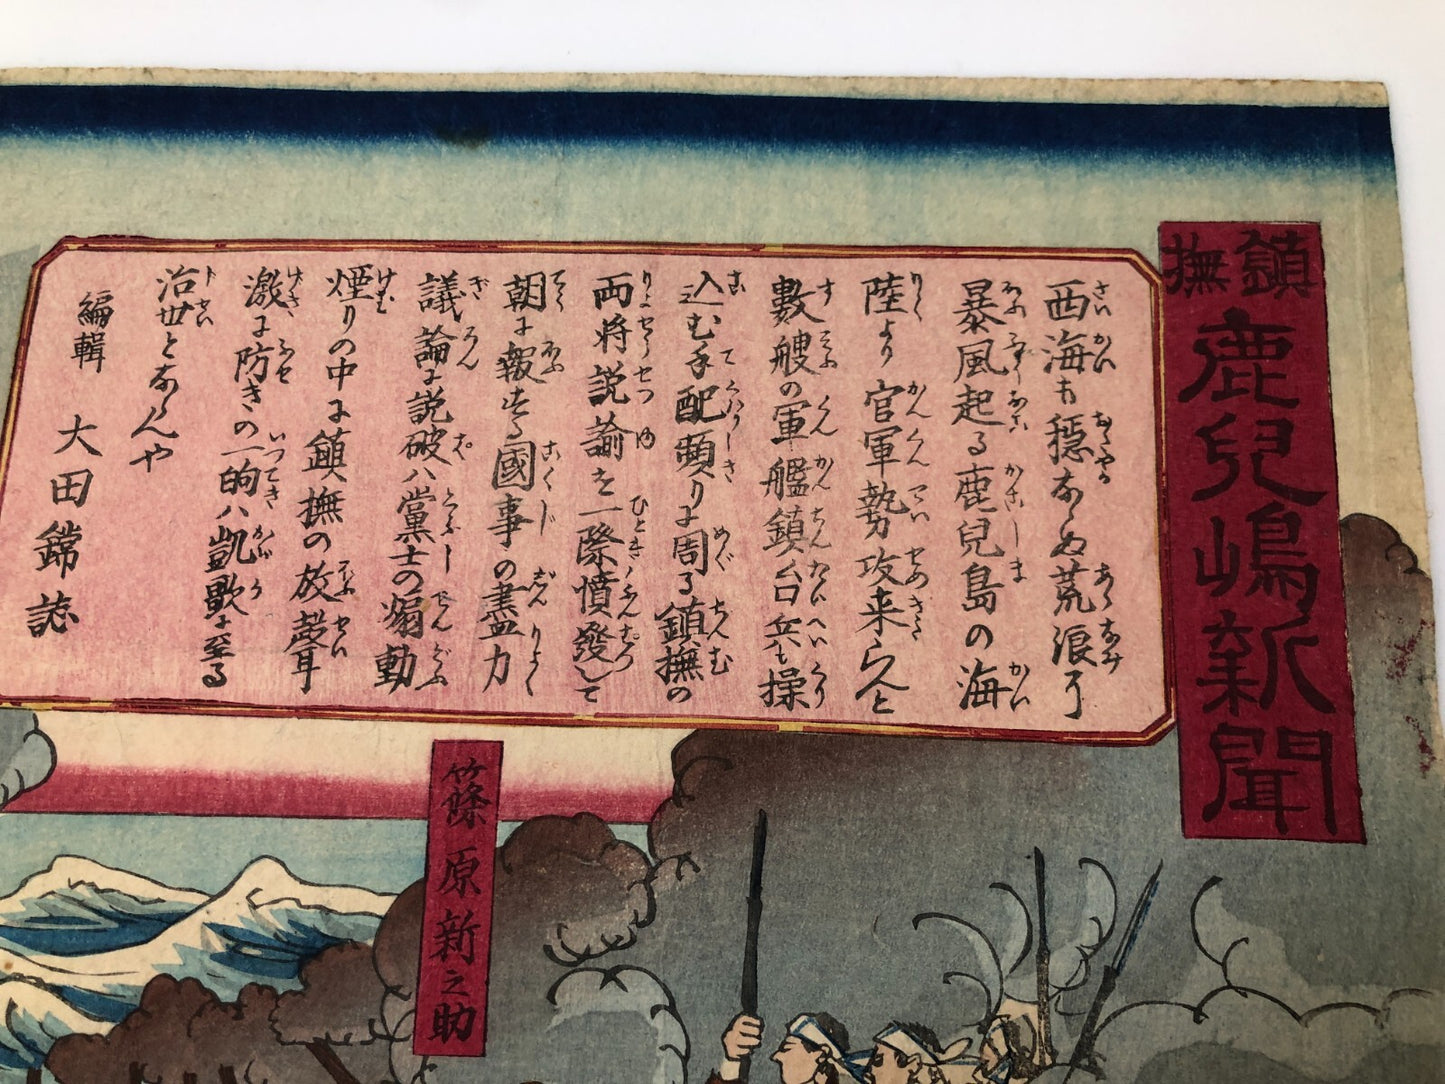 鎮撫
鹿兒嶋新聞
西海も穏ならぬ荒浪や
暴風起る鹿兒島の海
陸より官軍勢攻来らんと
數艘の軍艦鎮台兵を操
込む手配頻りに周る鎮撫の
両将説諭を一際憤發して
朝に報ずる國事の盡力
議論に説破ハ黨士の煽動
煙りの中に鎮撫の放聲
激に防ぎの一的ハ凱歌に至る
治世となんや
編輯 大田錦誌
篠原新之助